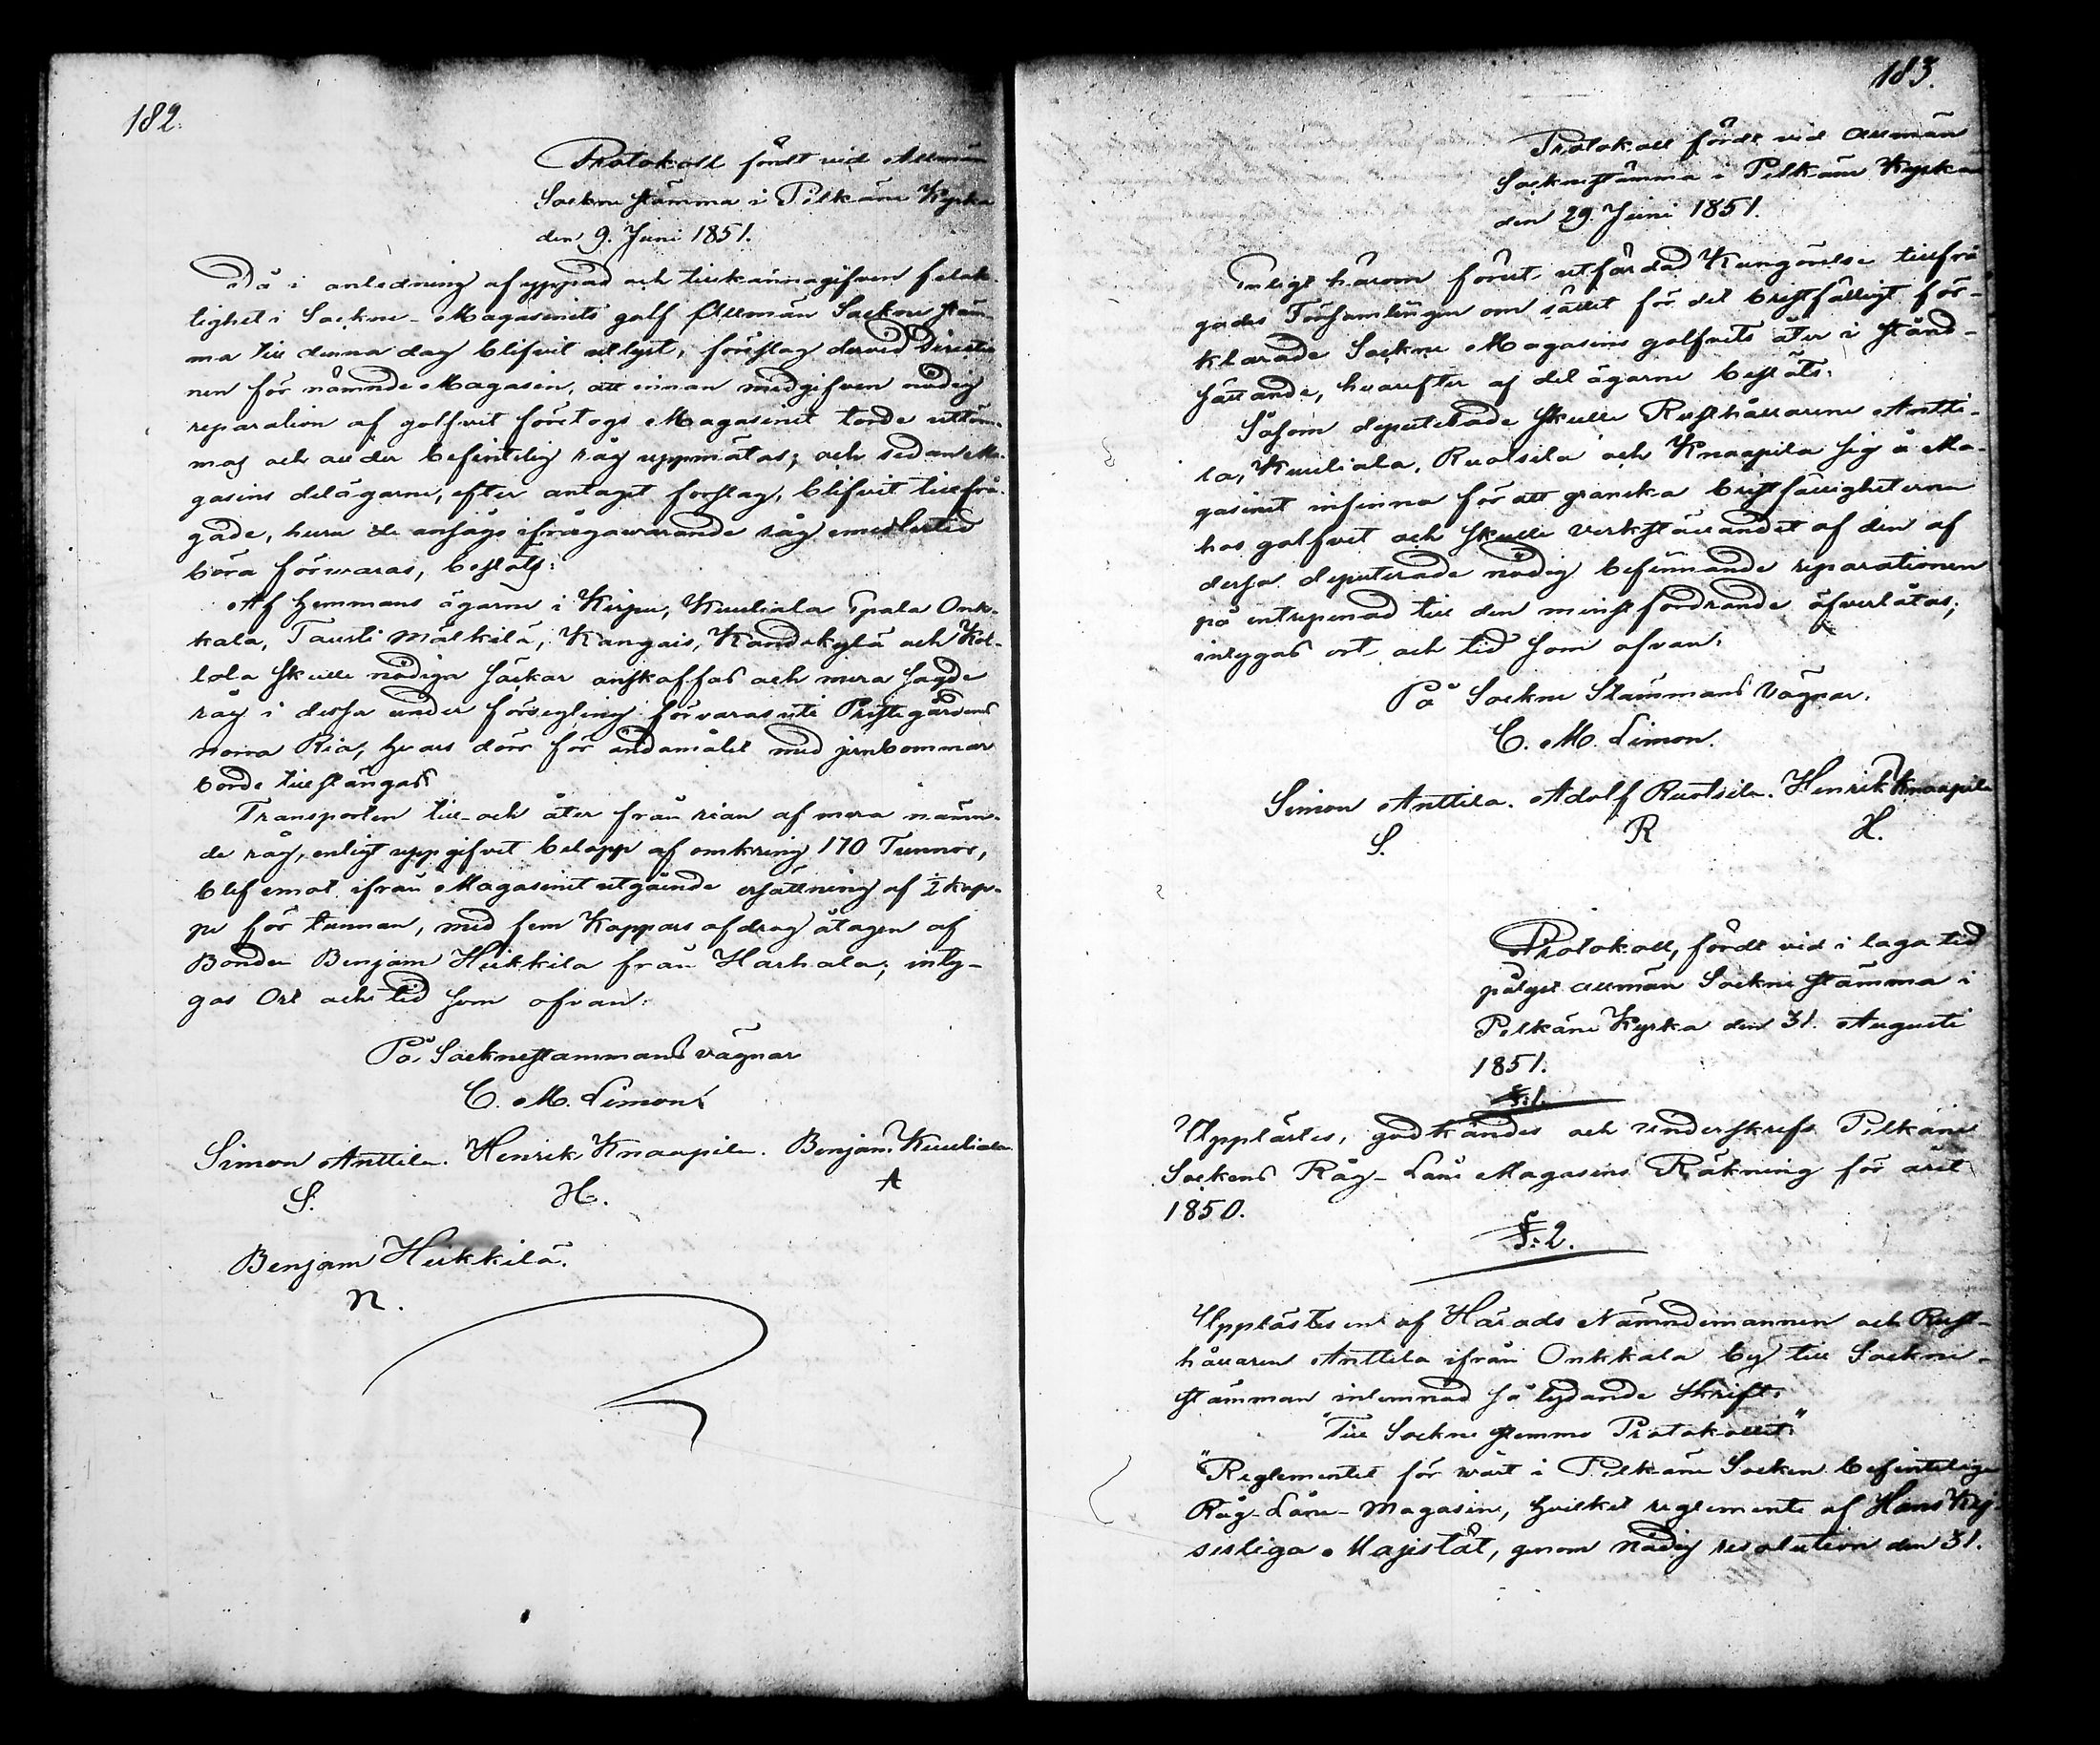 182.
Protokoll fördt vid Allmän
Sockne stämma i Pelkäne Kyrka
den 9. Juni 1851.
Då i anledning af yppad och tillkännagifven felak-
tighet i Sockne-Magasinets golf Allmän Sockne stäm-
ma till denna dag blifvit utlyst, föreslog dervid Direktio-
nen för nämnde Magasin, att innan medgifven nödig
reparation af golfvet företogs Magasinet torde uttöm-
mas och all der befintelig råg uppmätas; och sedan Ma-
gasins delägarne, efter antaget förslag, blifvit tillfrå-
gade, huru de ansågo ifrågawarande råg emedlertid
böra förwaras, beslöts:
Af Hemmans ägarne i Kirpu, Kuuliala Epala Onk-
kala, Tausti Mälkilä, Kangais, Kandakylä och Kol-
lola skulle nödiga säckar anskaffas och mera sagde
råg i dessa under försegling förvaras uti Prestegårdens
norra Ria, hvars dörr för ändamålet med jernbommar
borde tillstängas.
Transporten till- och åter från rian af mera nämn-
de råg, enligt uppgifvet belopp af omkring 170 Tunnor,
blef emot ifrån Magasinet utgående ersättning af ½ kap-
pe för tunnan, med fem Kappars afdrag åtagen af
Bonden Benjam Heikkilä från Harhala; inty-
gas Ort och tid som ofvan.
På Socknestämmans vägnar
C. M. Limon.
Simon Anttila. Henrik Knaapila. Benjam. Kuuliala
S. H. A
Benjam Heikkilä.
N.
183.
Protokoll fördt vid Allmän
Socknestämma i Pelkäne Kyrka
den 29. Juni 1851.
Enligt härom förut utfärdad Kungörelse tillfrå-
gades Församlingen om sättet för det bristfälligt för-
klarade Sockne Magasins golfvets åter i stånd-
sättande, hvarefter af delägarne beslöts:
Såsom deputerade skulle Rusthållarene Antti-
la, Kuuliala, Ruotsila och Knaapila sig å Ma-
gasinet infinna för att granska bristfälligheterna
hos golfvet och skulle verkställandet af den af
dessa deputerade nödig befunnande reparationen
på entrepenad till den minst fordrande öfverlåtas;
intygas ort och tid som ofvan.
På Sockne Stämmans vägnar.
C. M. Limon.
Simon Anttila. Adolf Ruotsila. Henrik Knaapila
S. R H.
Protokoll, fördt vid i laga tid
pålyst allmän Sockne stämma i
Pelkäne Kyrka den 31. Augusti
1851.
§.1.
Upplästes, godkändes och underskrefs Pelkäne
Sockens Råg-Låne Magasins Räkning för året
1850.
§.2.
Upplästes en af Härads Nämndemannen och Rust-
hållaren Anttila ifrån Onkkala by till Sockne-
stämman inlemnad så lydande skrift.
"Till Sockne stemmo Protokollet"
"Reglementet för wårt i Pelkäne Socken befintelige
Råg-Låne-Magasin, hvilket reglemente af Hans Kej-
serliga Majistät, genom nådig resolution den 31.